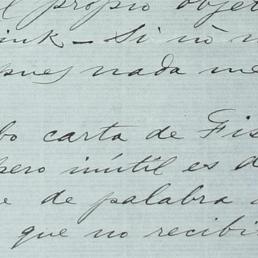 l propio objet
ink — Si nò n
pues nada me
bo carta de Fis
pero inútil es d
e de palabra
que no recibi